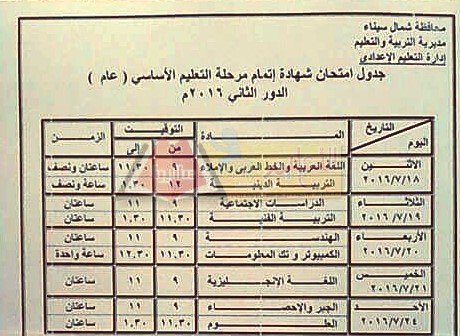 محافظة شمال سيناء
مديرية التربية والتعليم
إدارة التعليم الإعدادي
جدول امتحان شهادة إتمام مرحلة التعليم الأساسي ( عام )
الدور الثاني ٢٠١٦م
التاريخ اليوم المـــادة التوقيت من إلى الزمن
الاثنين ٢٠١٦/٧/١٨ اللغة العربية والخط العربي والاملاء ٩ ١١,٣٠ ساعتان ونصف
التربية الدينية ١٢ ١,٣٠ ساعة ونصف
الثلاثاء ٢٠١٦/٧/١٩ الدراسات الاجتماعية ٩ ١١ ساعتان
التربية الفنية ١١,٣٠ ١,٣٠ ساعتان
الأربعاء ٢٠١٦/٧/٢٠ الهندسة ٩ ١١ ساعتان
الكمبيوتر و تك المعلومات ١١,٣٠ ١٢,٣٠ ساعة واحدة
الخميس ٢٠١٦/٧/٢١ اللغة الإنجليزية ٩ ١١ ساعتان
الأحد ٢٠١٦/٧/٢٤ الجبر والإحصاء ٩ ١١ ساعتان
العلوم ١١,٣٠ ١,٣٠ ساعتان